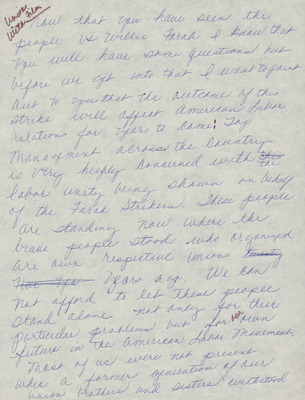 Union
With Film
Now that you have seen the
people vs Willie Farah I know that
you will have some questions but
before we get into that I want to point
out to you that the outcome of this
strike will affect American Labor
relations for years to come: Top
Management across the Country
is very heeply concerned with the
labor unity being shown on behalf
of the Farah Strikers. These people
are standing now where the
brave people stood who organized
are own respective unions
years ago. We can
not afford to let these people
stand alone not only for their
particular problems but for our own
future in the American Labor Movement.
Most of us were not present
when a former generation of our
union brothers and sisters withstood